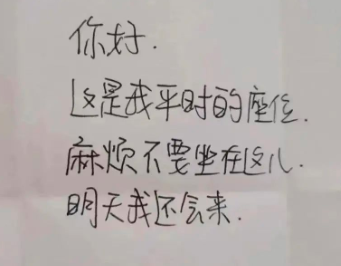 你好.
这是我平时的座位.
麻烦不要坐在这儿.
明天我还会来.